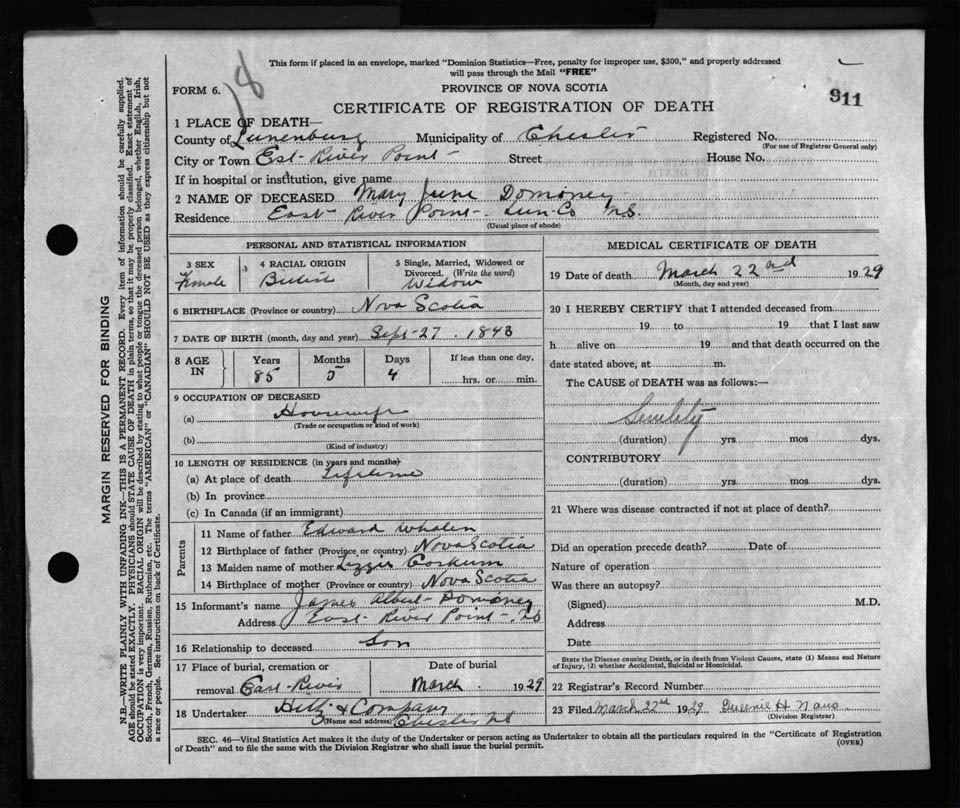 This form if placed in an envelope, marked "Dominion Statistics—Free, penalty for improper use, $300," and properly addressed
will pass through the Mail "FREE"
18
FORM 6.
PROVINCE OF NOVA SCOTIA
911
CERTIFICATE OF REGISTRATION OF DEATH
1 PLACE OF DEATH—
County of Lunenburg Municipality of Chester Registered No.
(For use of Registrar General only)
City or Town Est River Point Street House No.
If in hospital or institution, give name
2 NAME OF DECEASED Mary June Domoney
Residence East River Point Lun. Co N.S.
(Usual place of abode)
PERSONAL AND STATISTICAL INFORMATION
3 SEX
Female
4 RACIAL ORIGIN
British
5 Single, Married, Widowed or
Divorced. (Write the word)
Widow
6 BIRTHPLACE (Province or country) Nova Scotia
7 DATE OF BIRTH (month, day and year) Sept 27. 1843
8 AGE IN
Years Months Days If less than one day,
85 5 4 hrs. or min.
9 OCCUPATION OF DECEASED
(a) Housewife
(Trade or occupation or kind of work)
(b)
(Kind of industry)
10 LENGTH OF RESIDENCE (in years and months)
(a) At place of death Lifetime
(b) In province
(c) In Canada (if an immigrant)
Parents
11 Name of father Edward Whalen
12 Birthplace of father (Province or country) Nova Scotia
13 Maiden name of mother Lizzie Corkum
14 Birthplace of mother (Province or country) Nova Scotia
15 Informant's name James Albert Domoney
Address East River Point NS
16 Relationship to deceased Son
17 Place of burial, cremation or Date of burial
removal East River March 1929
18 Undertaker & Company
(Name and address) Chester NS
MEDICAL CERTIFICATE OF DEATH
19 Date of death March 22nd 1929
(Month, day and year)
20 I HEREBY CERTIFY that I attended deceased from
19 to 19 that I last saw
h alive on 19 and that death occurred on the
date stated above, at m.
The CAUSE of DEATH was as follows:—
Senility
(duration) yrs. mos. dys.
CONTRIBUTORY
(duration) yrs. mos. dys.
21 Where was disease contracted if not at place of death?
Did an operation precede death? Date of
Nature of operation
Was there an autopsy?
(Signed) M.D.
Address
Date
State the Disease causing Death, or in death from Violent Causes, state (1) Means and Nature
of Injury, (2) whether Accidental, Suicidal or Homicidal.
22 Registrar's Record Number
23 Filed March 27th 1929 H
(Division Registrar)
SEC. 46—Vital Statistics Act makes it the duty of the Undertaker or person acting as Undertaker to obtain all the particulars required in the "Certificate of Registration
of Death" and to file the same with the Division Registrar who shall issue the burial permit.
(OVER)
MARGIN RESERVED FOR BINDING
N.B.—WRITE PLAINLY WITH UNFADING INK—THIS IS A PERMANENT RECORD. Every item of information should be carefully supplied.
AGE should be stated EXACTLY. PHYSICIANS should STATE CAUSE OF DEATH in plain terms, so that it may be properly classified. Exact statement of
OCCUPATION is very important. RACIAL ORIGIN will be described by stating to what people or tongue the deceased person belonged, whether English, Irish,
Scotch, French, German, Russian, Ruthenian, etc. The terms "AMERICAN" or "CANADIAN" SHOULD NOT BE USED as they express citizenship but not
a race or people. See instructions on back of Certificate.